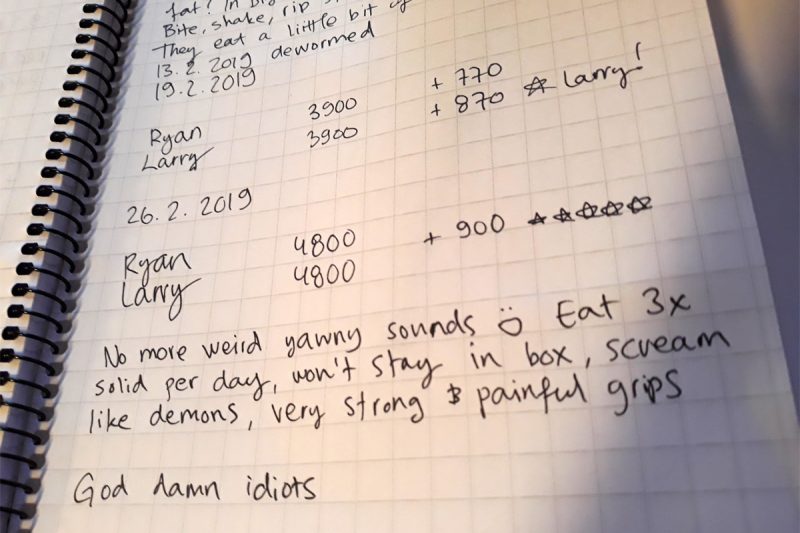 fat? In
Bite, shake, rip
They eat a little bit of
13. 2. 2019 dewormed
19. 2. 2019
Ryan 3900 + 770
Larry 3900 + 870 ☆ Larry!
26. 2. 2019
Ryan 4800 + 900 ☆☆☆☆☆
Larry 4800
No more weird yawny sounds ☹ Eat 3x
solid per day, won't stay in box, scream
like demons, very strong & painful grips
God damn idiots